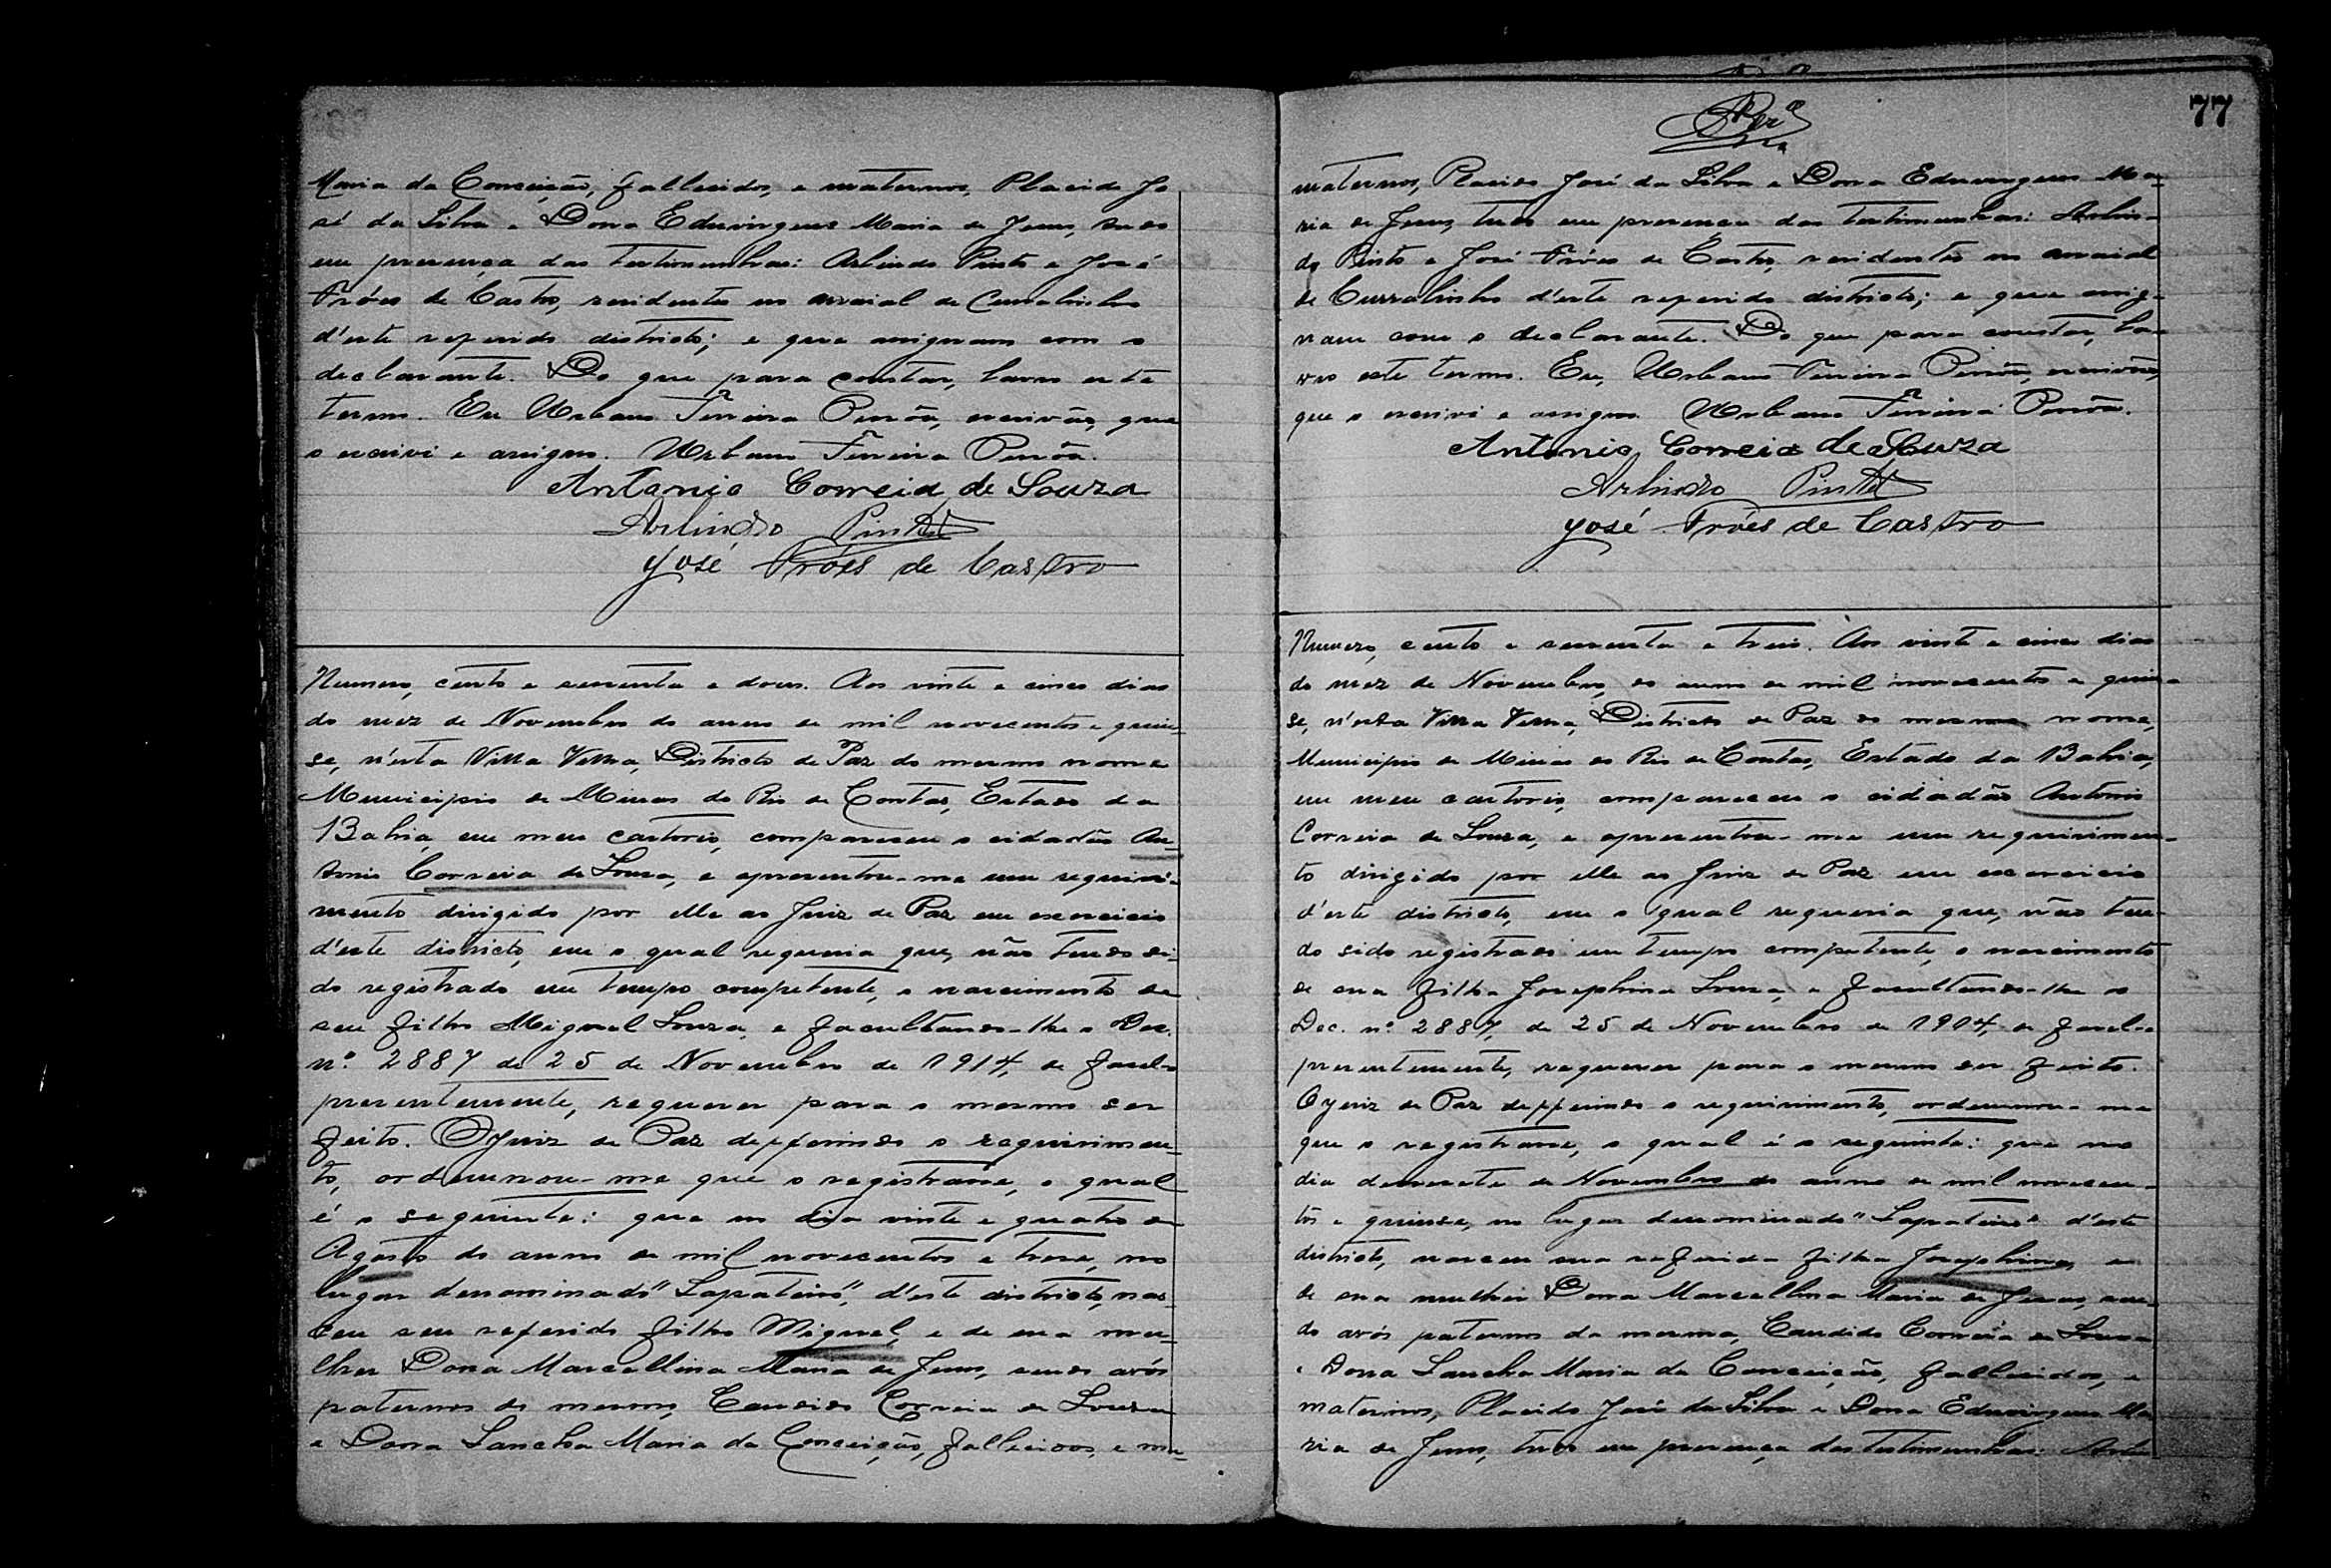 Maria da Conceição, fallecidos, e maternos, Placido Jo
sé da Silva e Dona Eduvirgens Maria de Jesus, tudo
em presença das testimunhas: Arlindo Pinto e José
Fróes de Castro, residentes no arraial de Curralinho
d'este referido districto; e que assignam com o
declarante. Do que para constar, lavro este
termo. Eu Urbano Pereira, escrivão, que
o escrivi e assigno. Urbano
Antonio Correia de Souza
Arlindo Pinto
José Fróes de Castro
Numero, cento e sessenta e dous. Aos vinte e cinco dias
do mez de Novembro do anno de mil novecentos e quin-
se, n'esta Villa Velha, Districto de Paz do mesmo nome
Municipio de Minas do Rio de Contas, Estado da
Bahia, em meu cartorio, compareceu o cidadão An-
tonio Correia de Souza, e apresentou-me um requiri-
mento dirigido por elle ao Juiz de Paz em exercicio
d'este districto, em o qual requeria que, não tendo si-
do registrado em tempo competente, o nascimento de
seu filho Miguel Souza, e facultando-lhe o Dec.
nº. 2887 de 25 de Novembro de 1914, de
presentemente, requerer para o mesmo ser
feito. O Juiz de Paz defferindo o requirimen-
to, ordennou-me que o registrasse, o qual
é o seguinte: que no dia vinte e quatro de
Agosto do anno de mil novecentos e trese, no
lugar denominado "Sapateiro", d'este districto, nas-
ceu seu referido filho Miguel, e de sua mu-
lher Dona Marcellina Maria de Jesus, sendo avós
paternos do mesmo, Candido Correia de Souza
e Dona Sancha Maria da Conceição, fallecidos, e ma-
77
maternos, Placido José da Silva e Dona Eduvirgens Ma-
ria de Jesus, tudo em presença das testimunhas: Arlin-
do Pinto e José Fróes de Castro, residentes no arraial
de Curralinho d'este referido districto; e que assig-
nam com o declarante. Do que para constar, la-
vro este termo. Eu, Urbano, escrivão,
que o escrivi e assigno. Urbano
Antonio Correia de Souza
Arlindo Pinto
José Fróes de Castro
Numero, cento e sessenta e tres. Aos vinte e cinco dias
do mez de Novembro, do anno de mil novecentos e quin-
se, n'esta Villa Velha, Districto de Paz do mesmo nome,
Municipio de Minas do Rio de Contas, Estado da Bahia,
em meu cartorio, compareceu o cidadão Antonio
Correia de Souza, e apresentou-me um requirimen-
to dirigido por elle ao Juiz de Paz em exercicio
d'este districto, em o qual requeria que, não ten-
do sido registrado em tempo competente, o nascimento
de sua filha Josephina Souza, e facultando-lhe o
Dec. nº. 2887, de 25 de Novembro de 1914, de
presentemente, requerer para o mesmo ser feito.
O Juiz de Paz defferindo o requirimento, ordennou-me
que o registrasse, o qual é o seguinte: que no
dia desessete de Novembro do anno de mil novecen-
tos e quinse, no lugar denominado "Sapateiro" d'este
districto, nasceu sua referida filha Josephina, e
de sua mulher Dona Marcellina Maria de Jesus, sen-
do avós paternos da mesma, Candido Correia de Souza
e Dona Sancha Maria da Conceição, fallecidos, e
maternos, Placido José da Silva e Dona Eduvirgens Ma
ria de Jesus, tudo em presença das testimunhas: Arlin